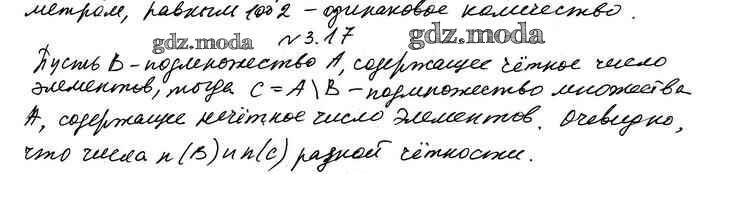 метром, равным 1 00 2 – одинаковое количество.
gdz.moda №3.17 gdz.moda
Пусть B – подмножество A, содержащее чётное число
элементов, тогда C = A \ B – подмножество множества
A, содержащие нечётное число элементов. Очевидно,
что числа n(B) и n(C) разной чётности.